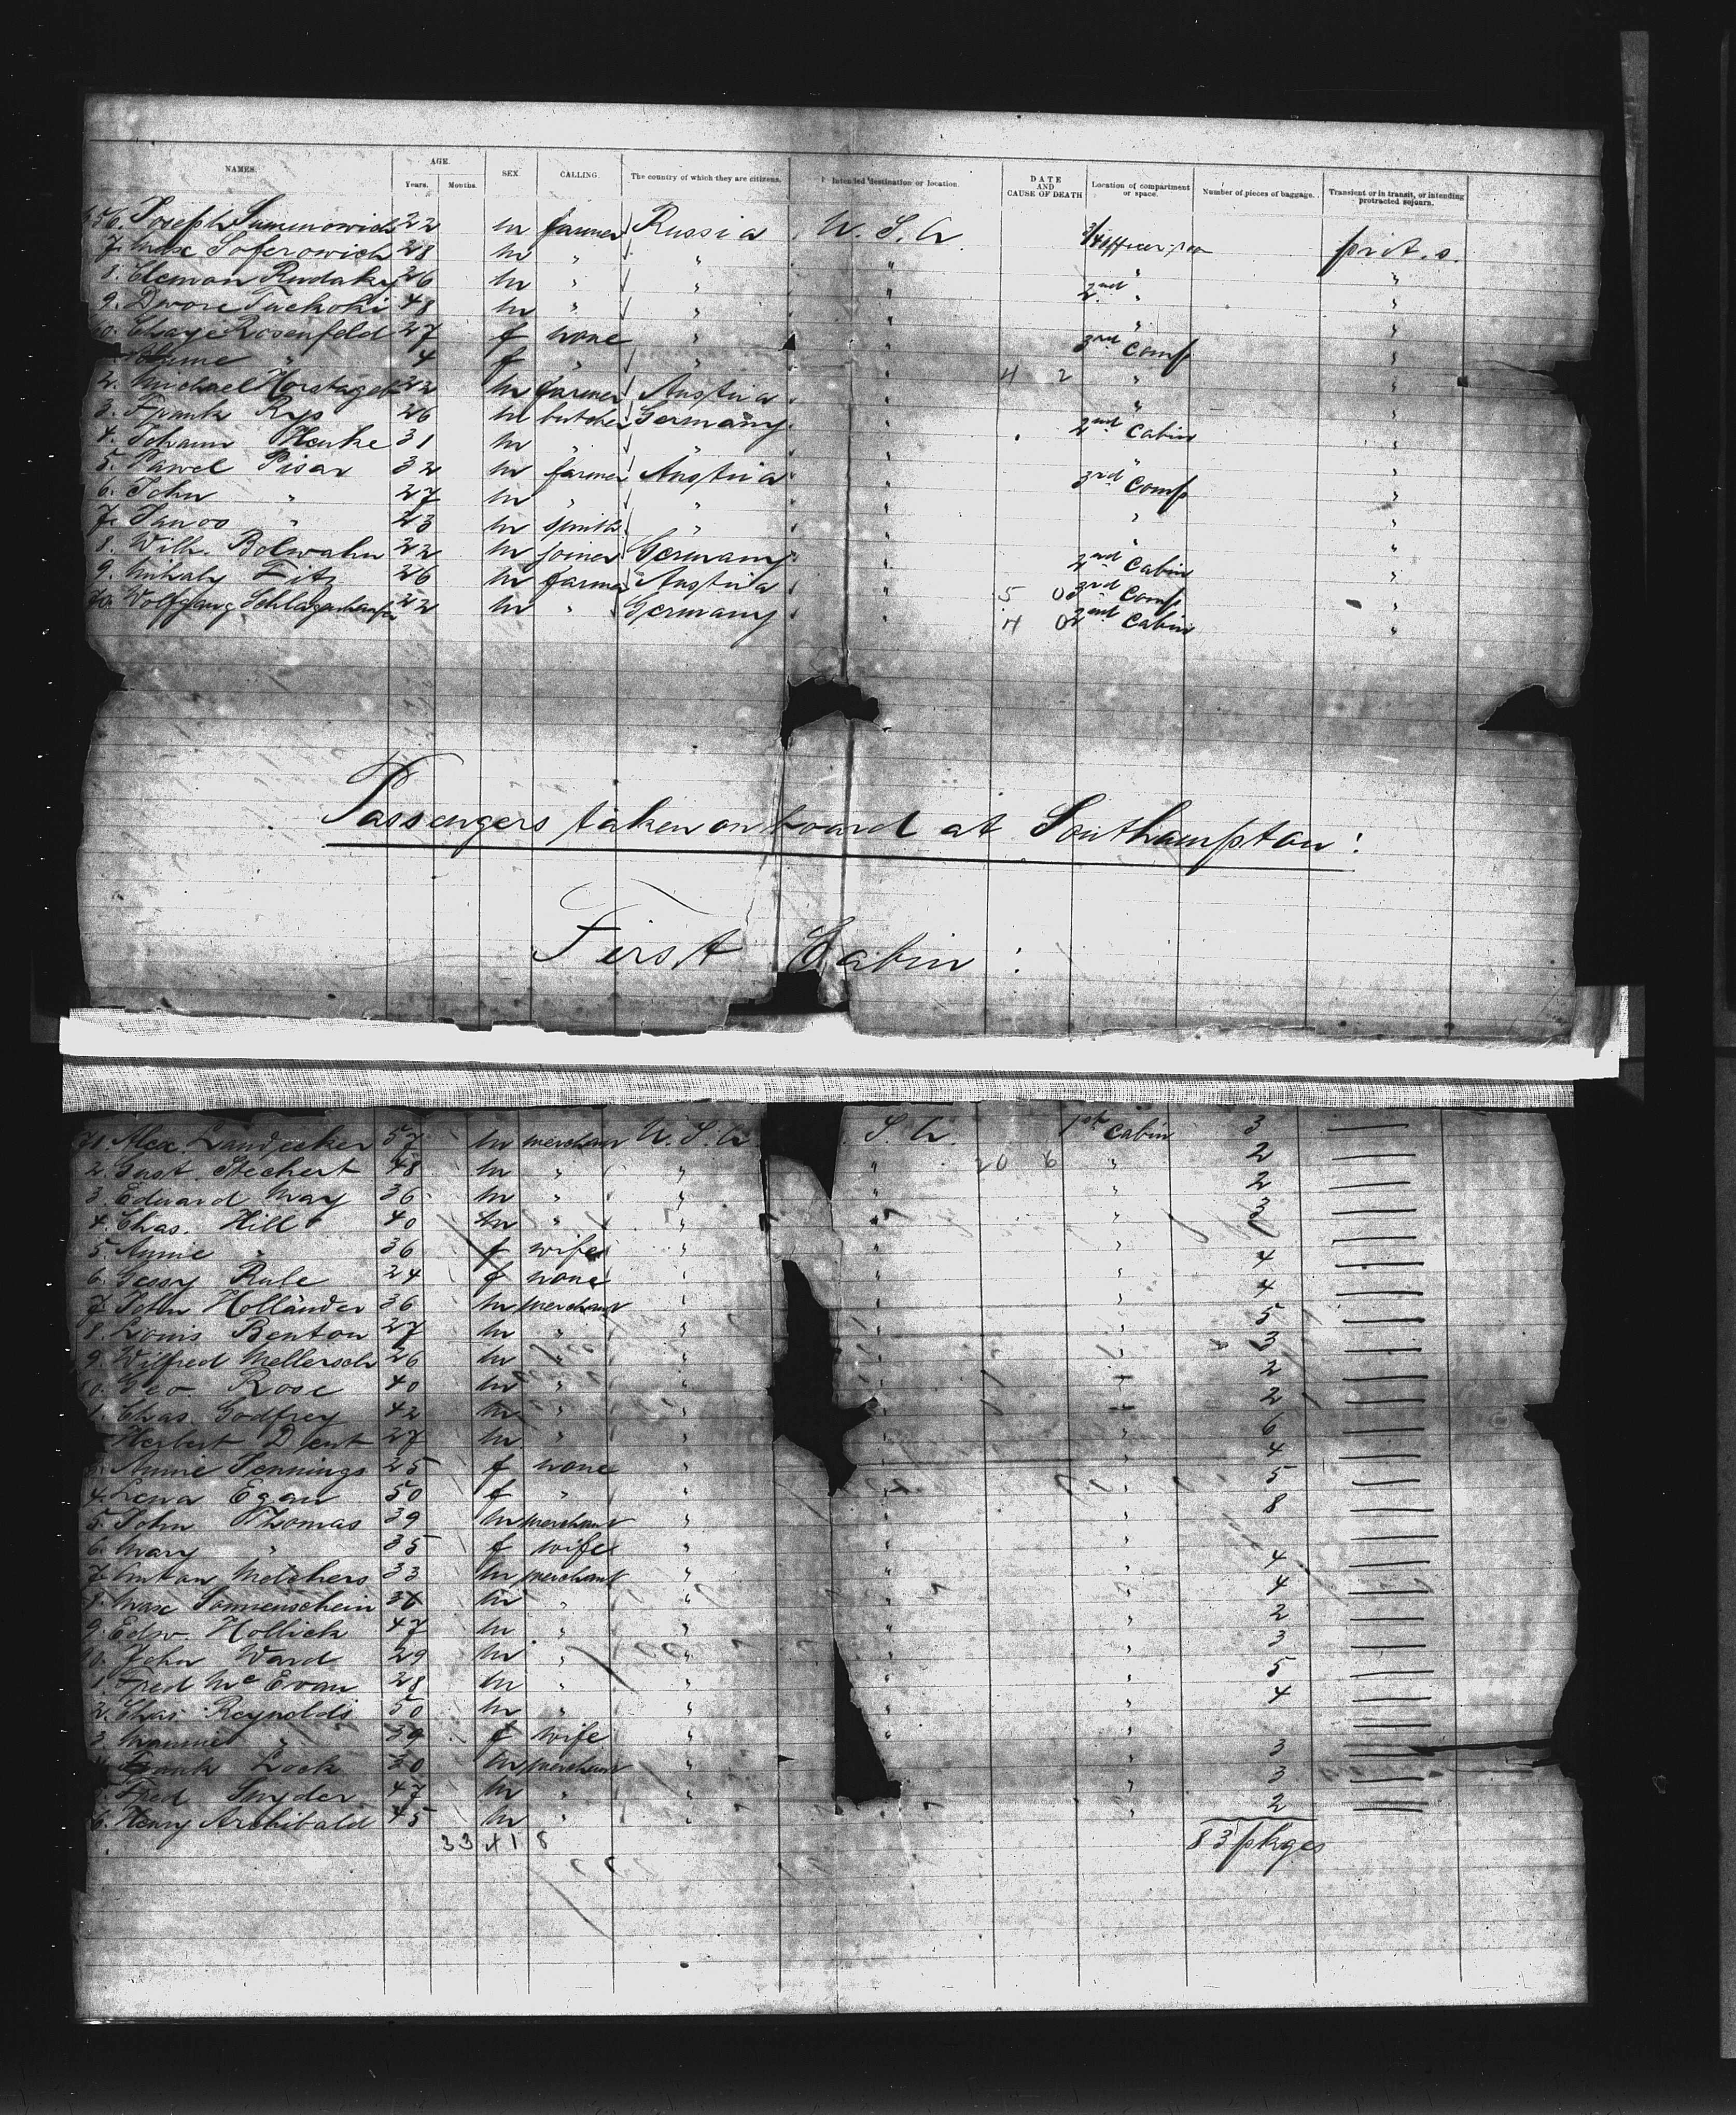 NAMES. AGE. Years. Months. SEX CALLING. The country of which they are citizens. Intended destination or location. DATE AND CAUSE OF DEATH Location of compartment or space. Number of pieces of baggage. Transient or in transit, or intending protracted sojourn.
Joseph 22 m farmer Russia U.S.A. prot. s.
7. Max Soferowich 28 m " " " " "
8. Rudaky 26 m " " " 2nd " "
9. 48 m " " " " "
60. Chaye Rosenfeld 27 f none " " 3rd Comp "
" 4 f " " " " "
2. Michael 22 m farmer Austria " " "
3. Frank Rys 26 m butcher Germany " 2nd Cabin "
4. Johann Henke 31 m " " " " "
5. Pawel Pisar 32 m farmer Austria " 3rd Comp "
6. John " 27 m " " " " "
7. " 23 m smith " " " "
8. Wilh. Bolwahn 22 m joiner Germany " 2nd Cabin "
9. Mihaly Fitz 26 m farmer Austria " 3rd Comp "
70. Wolfgang 22 m " Germany " 2nd Cabin "
Passengers taken on board at Southampton:
First Cabin:
71. Alex. Landecker 57 m merchant U.S.A. S.A. 1st Cabin 3 —
2. Gust. Stechert 48 m " " " 20 6 " 2 —
3. Eduard May 36 m " " " " 2 —
4. Chas. Hill 40 m " " " " 3 —
5. Annie " 36 f wife " " " —
6. Gessy Rule 24 f none " " " 4 —
7. John Holländer 36 m merchant " " " 4 —
8. Louis Benton 27 m " " " " 5 —
9. Wilfred Mellersch 26 m " " " " 3 —
80. Geo. Rose 40 m " " " " 2 —
1. Chas. Godfrey 42 m " " " " 2 —
Herbert Dent 27 m " " " " 6 —
3. Annie Jennings 25 f none " " " 4 —
4. Lena Egan 50 f " " " " 5 —
5. John Thomas 39 m merchant " " " 8 —
6. Mary " 35 f wife " " " —
7. Anton Melchers 33 m merchant " " " 4 —
8. Max Sonnenschein m " " " " 4 —
9. Edw. Hollick 47 m " " " " 2 —
90. John Ward 29 m " " " " 3 —
1. Fred McEvan 28 m " " " " 5 —
2. Chas. Reynolds 50 m " " " " 4 —
3. " 39 f wife " " " —
4. Frank Lock 30 m merchant " " 3 —
5. Fred Snyder 47 m " " " 3 —
6. Henry Archibald 45 m " " " 2 —
83 pkges